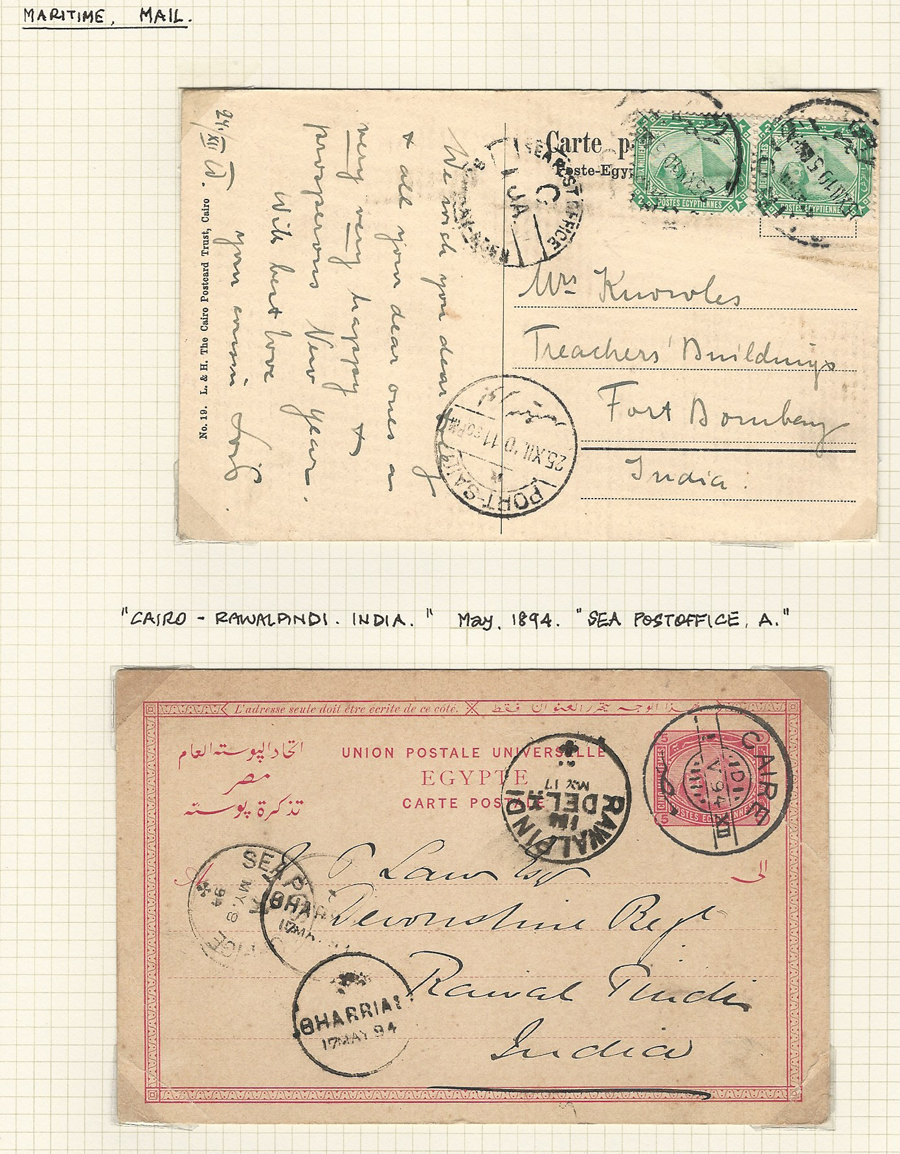 MARITIME, MAIL.
Carte p
Poste-Egyp
SEA POST OFFICE
C
1 JA
2 POSTES EGYPTIENNES
POSTES EGYPTIENNES
We wish you dear
& all your dear ones a
very very happy &
prosperous New Year.
With best love
your cousin
24/XII
No. 19. L. & H. The Cairo Postcard Trust, Cairo
Mrs Knowles
Treachers' Buildings
Fort Bombay
India.
PORT-SAID
25.XII
"CAIRO - RAWALPINDI. INDIA." May, 1894. "SEA POSTOFFICE, A."
L'adresse seule doit être écrite de ce côté.
هذا الوجه محرر العنوان فقط
اتحاد البوسته العام
مصر
تذكرة بوسته
UNION POSTALE UNIVERSELLE
EGYPTE
CARTE POSTALE
RAWALPINDI
DEL
MY 17
CAIRE
V 94
XII
POSTES EGYPTIENNES
5
الى
SEA PO
MY. 8
94
FICE
P Law Esq
Devonshire Regt
Rawal Pindi
India
BHAR
17MAY
BHARRIAI
17MAY 94